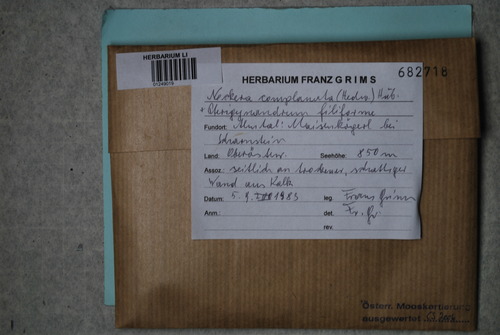 HERBARIUM LI
HERBARIUM FRANZ GRIMS
682718
Neckera complanata (Hedw.) Hüb.
+ Pterigynandrum filiforme
Fundort: bei
Scharnstein
Land: Oberösterr. Seehöhe: 850 m
Assoz.: seitlich an trockener, schattiger
Wand aus Kalk
Datum: 5. 9. 1983 leg. Franz Grims
Anm.: det. Fr. Gr.
rev.
Österr. Mooskartierung
ausgewertet